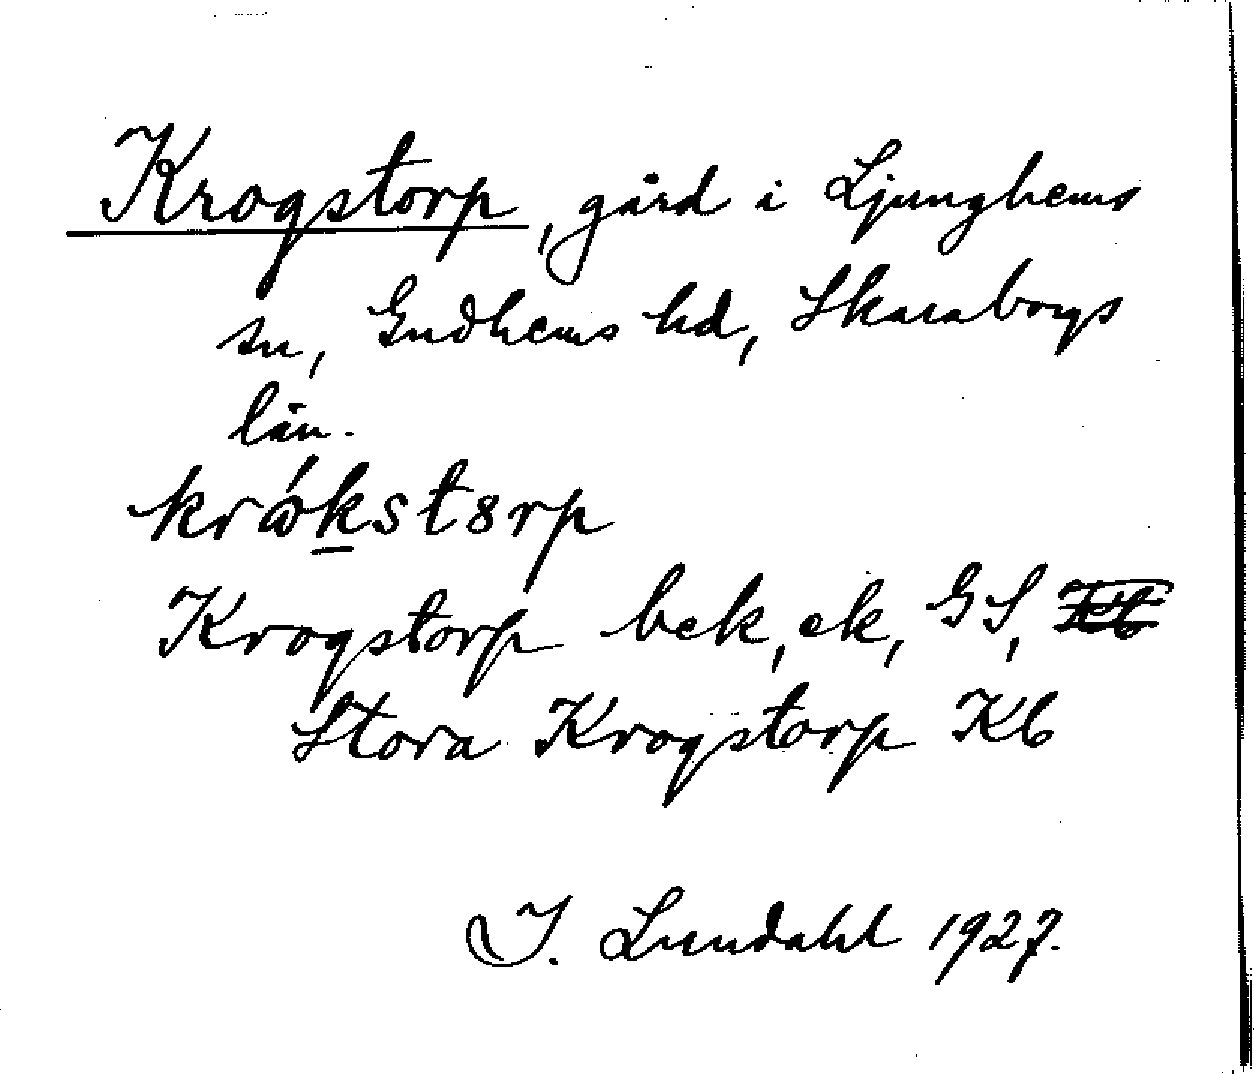 Krogstorp, gård i Ljunghems
sn, Gudhems hd, Skaraborgs
län.
krókst8rp
Krogstorp bek, ek, GS, Kb
Stora Krogstorp Kb
I. Lundahl 1927.